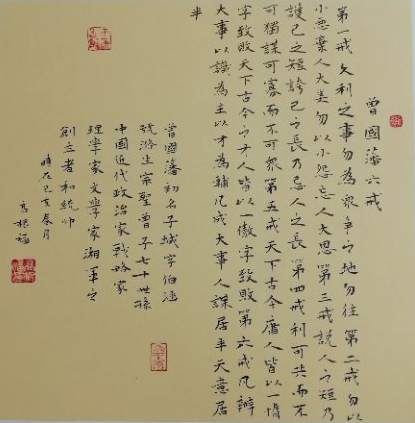 曾國藩六戒
第一戒久利之事勿為眾爭之地勿往第二戒勿以
小惡棄人大美勿以小怨忘人大恩第三戒說人之短乃
護己之短誇己之長乃忌人之長第四戒利可共而不
可獨謀可寡而不可眾第五戒天下古今庸人皆以一惰
字致敗天下古今之才人皆以一傲字致敗第六戒凡辦
大事以識為主以才為輔凡成大事人謀居半天意居
半
曾國藩初名子城字伯涵
號滌生宗聖曾子七十世孫
中國近代政治家戰略家
理學家文學家湘軍之
創立者和統帥
時在己亥春月